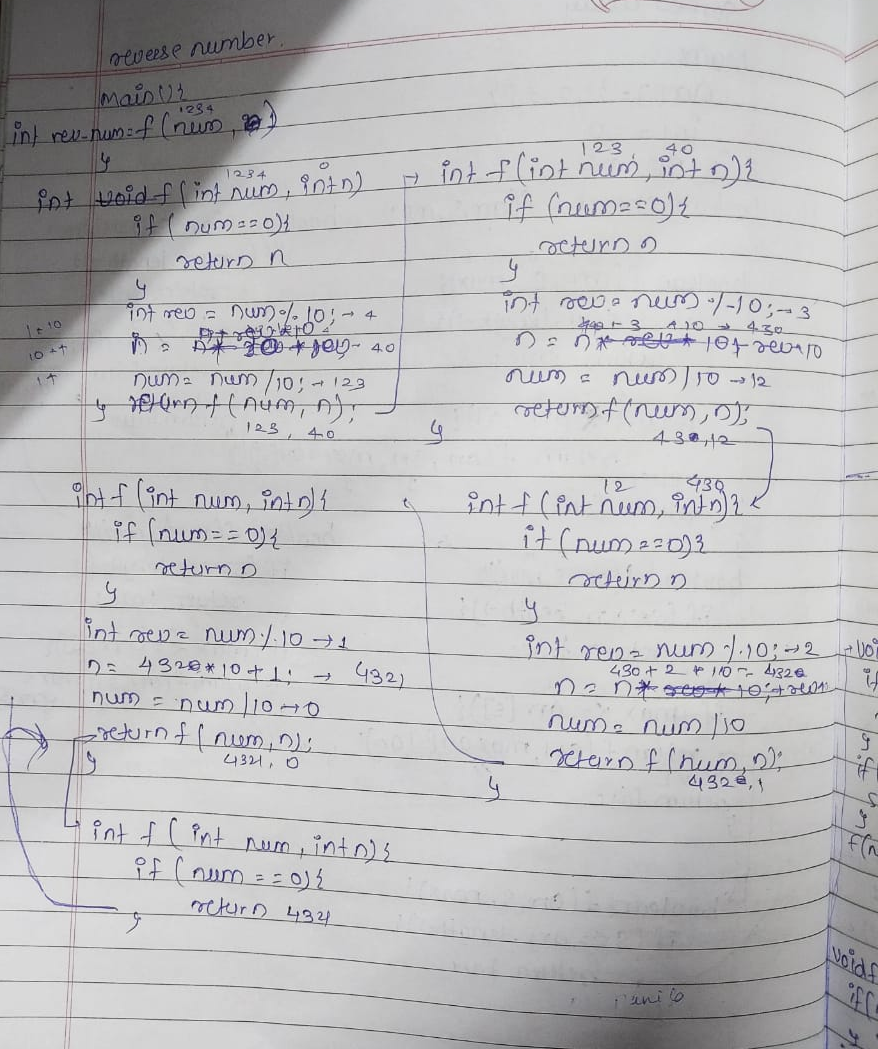 reverse number.
main(){
1234
int rev-num=f(num, 0)
}
1234 0
int void f(int num, int n)
if(num==0){
return n
}
int rev = num%10; → 4
n = n* 10 + rev → 40
num= num/10; → 123
} return f(num, n);
123, 40
1 * 10
10 + 4
14
123, 40
→ int f(int num, int n){
if (num==0){
return n
}
int rev= num%10; → 3
40 + 3 * 10 → 430
n = n* rev* 10+ rev*10
num = num/10 → 12
return f(num, n);
}
430,12
int f(int num, int n){
if (num==0){
return n
}
int rev= num%10 → 1
n= 4320*10+1; → 4321
num = num/10 → 0
return f(num, n);
4321, 0
}
12 430
int f(int num, int n){
if (num==0){
return n
}
int rev= num%10; → 2
430 + 2 * 10 = 4320
n= n* rev* 10; + rev*
num= num/10
return f(num, n);
4320, 1
}
int f( int num, int n){
if (num==0){
return 4321
}
→ voi
if
}
if
}
f(n
void f
if(